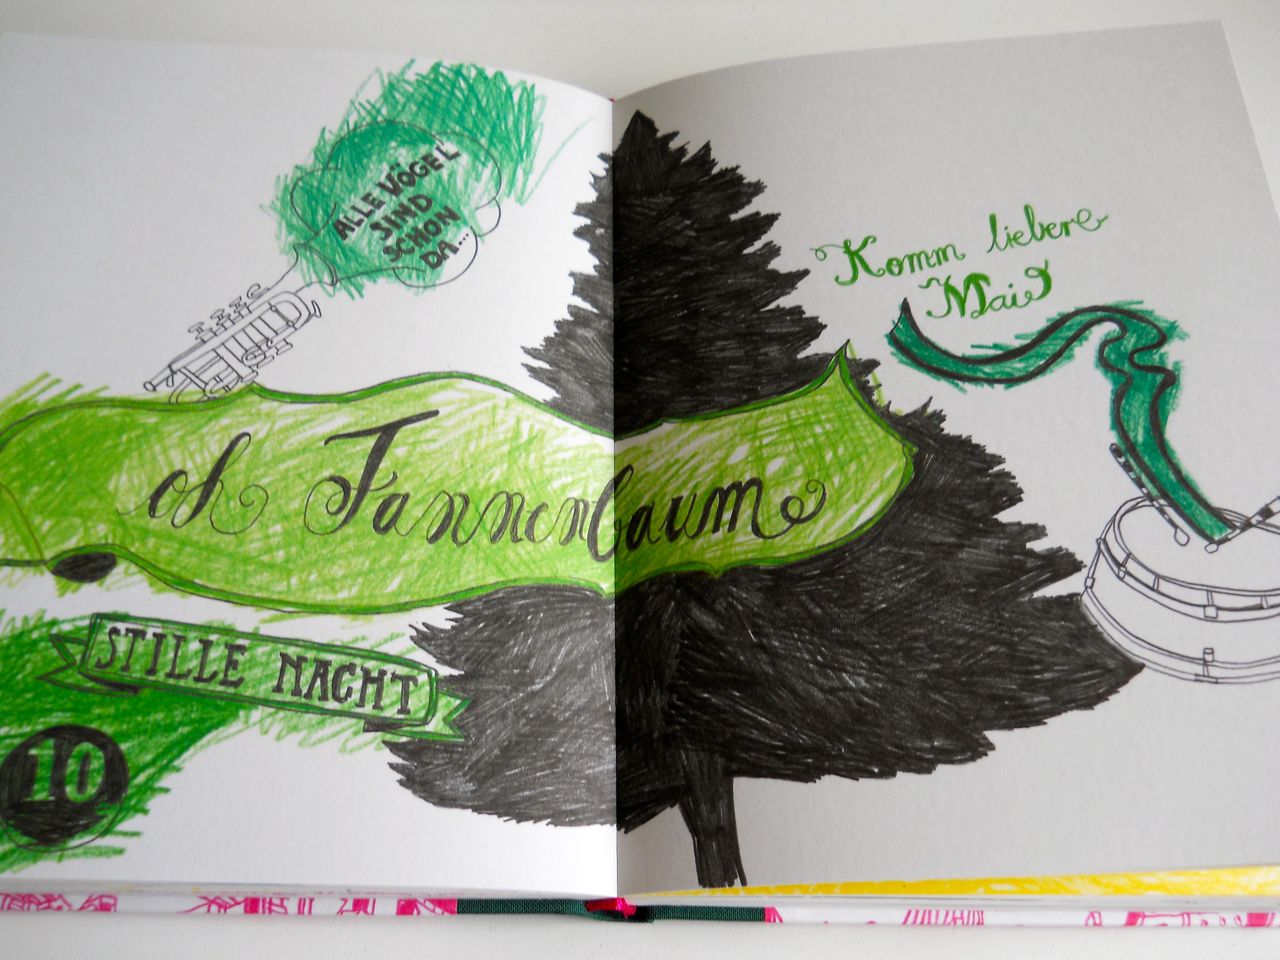 ALLE VÖGEL
SIND
SCHON
DA...
Komm liebere
Mai
oh Tannenbaum
STILLE NACHT
10